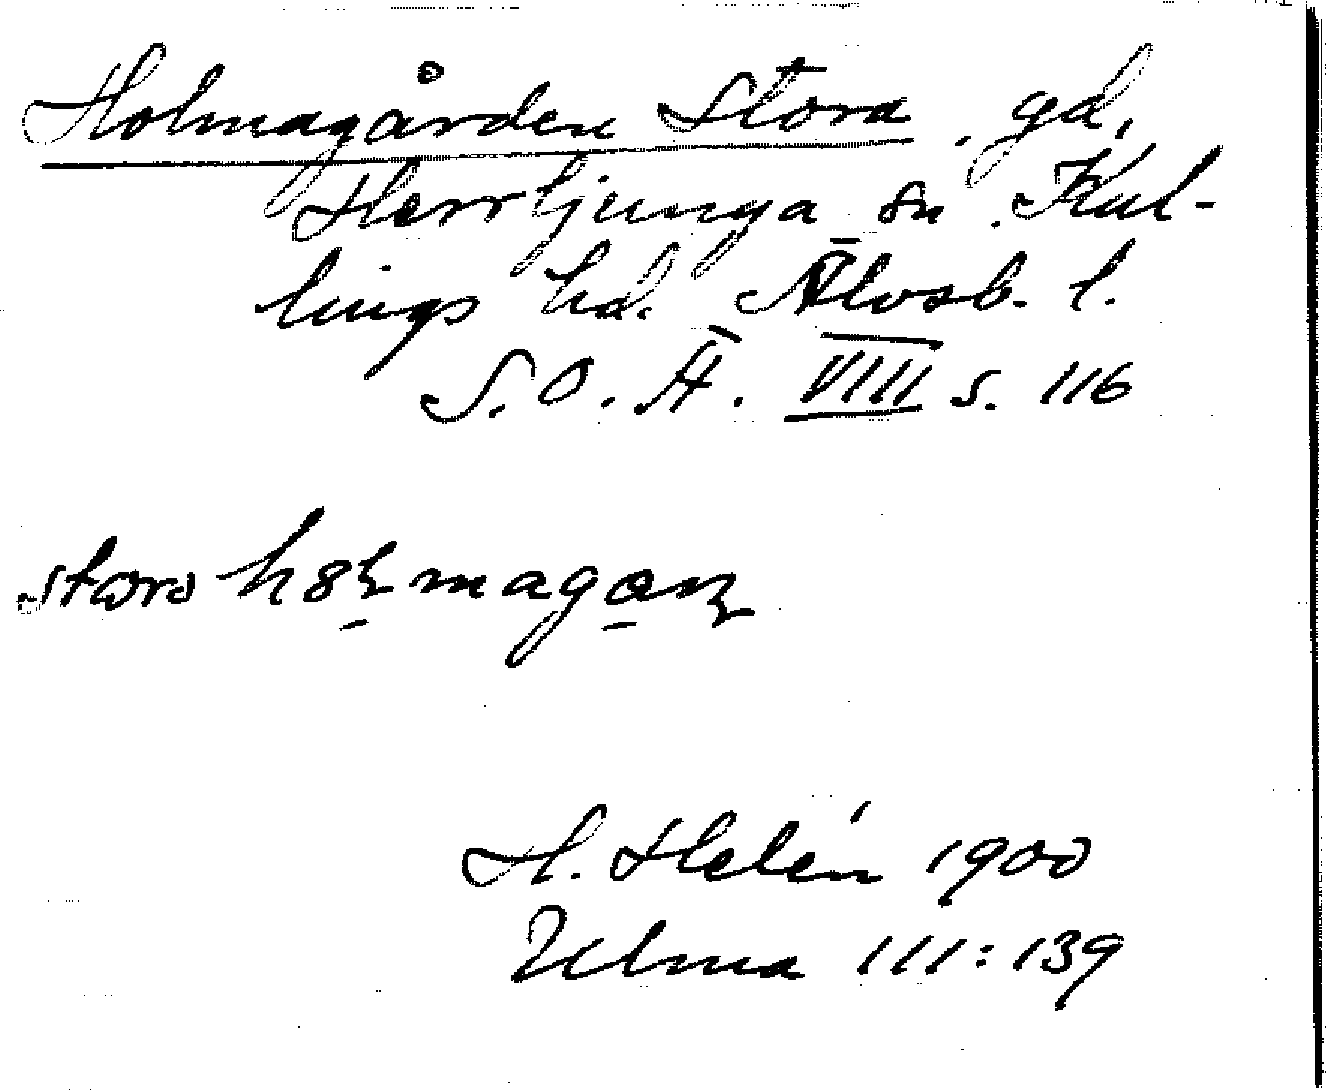 Holmagården Stora, gd,
Herrljunga sn. Kul-
lings hd. Älvsb. l.
S.O.Ä. VIII s. 116
H. Helén 1900
Ulma 111:139